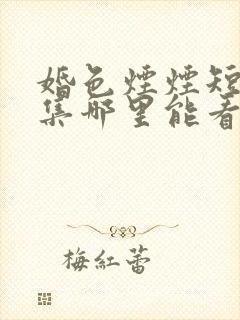 婚色煙煙短
集那里能看
梅紅蕾